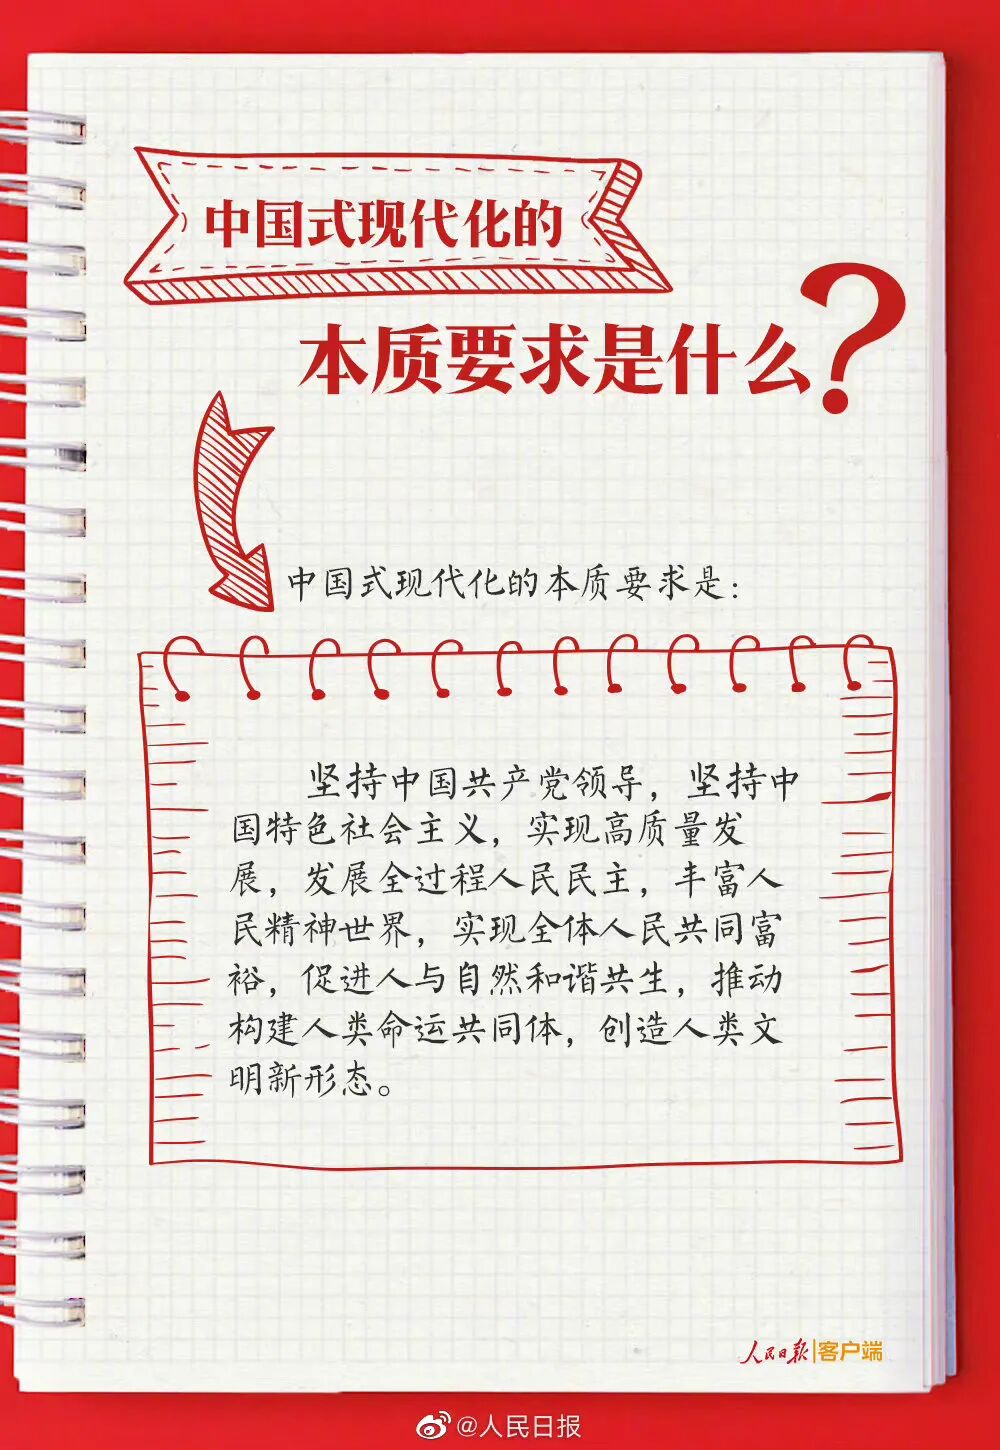 中国式现代化的
本质要求是什么?
中国式现代化的本质要求是：
坚持中国共产党领导，坚持中
国特色社会主义，实现高质量发
展，发展全过程人民民主，丰富人
民精神世界，实现全体人民共同富
裕，促进人与自然和谐共生，推动
构建人类命运共同体，创造人类文
明新形态。
人民日报|客户端
@人民日报